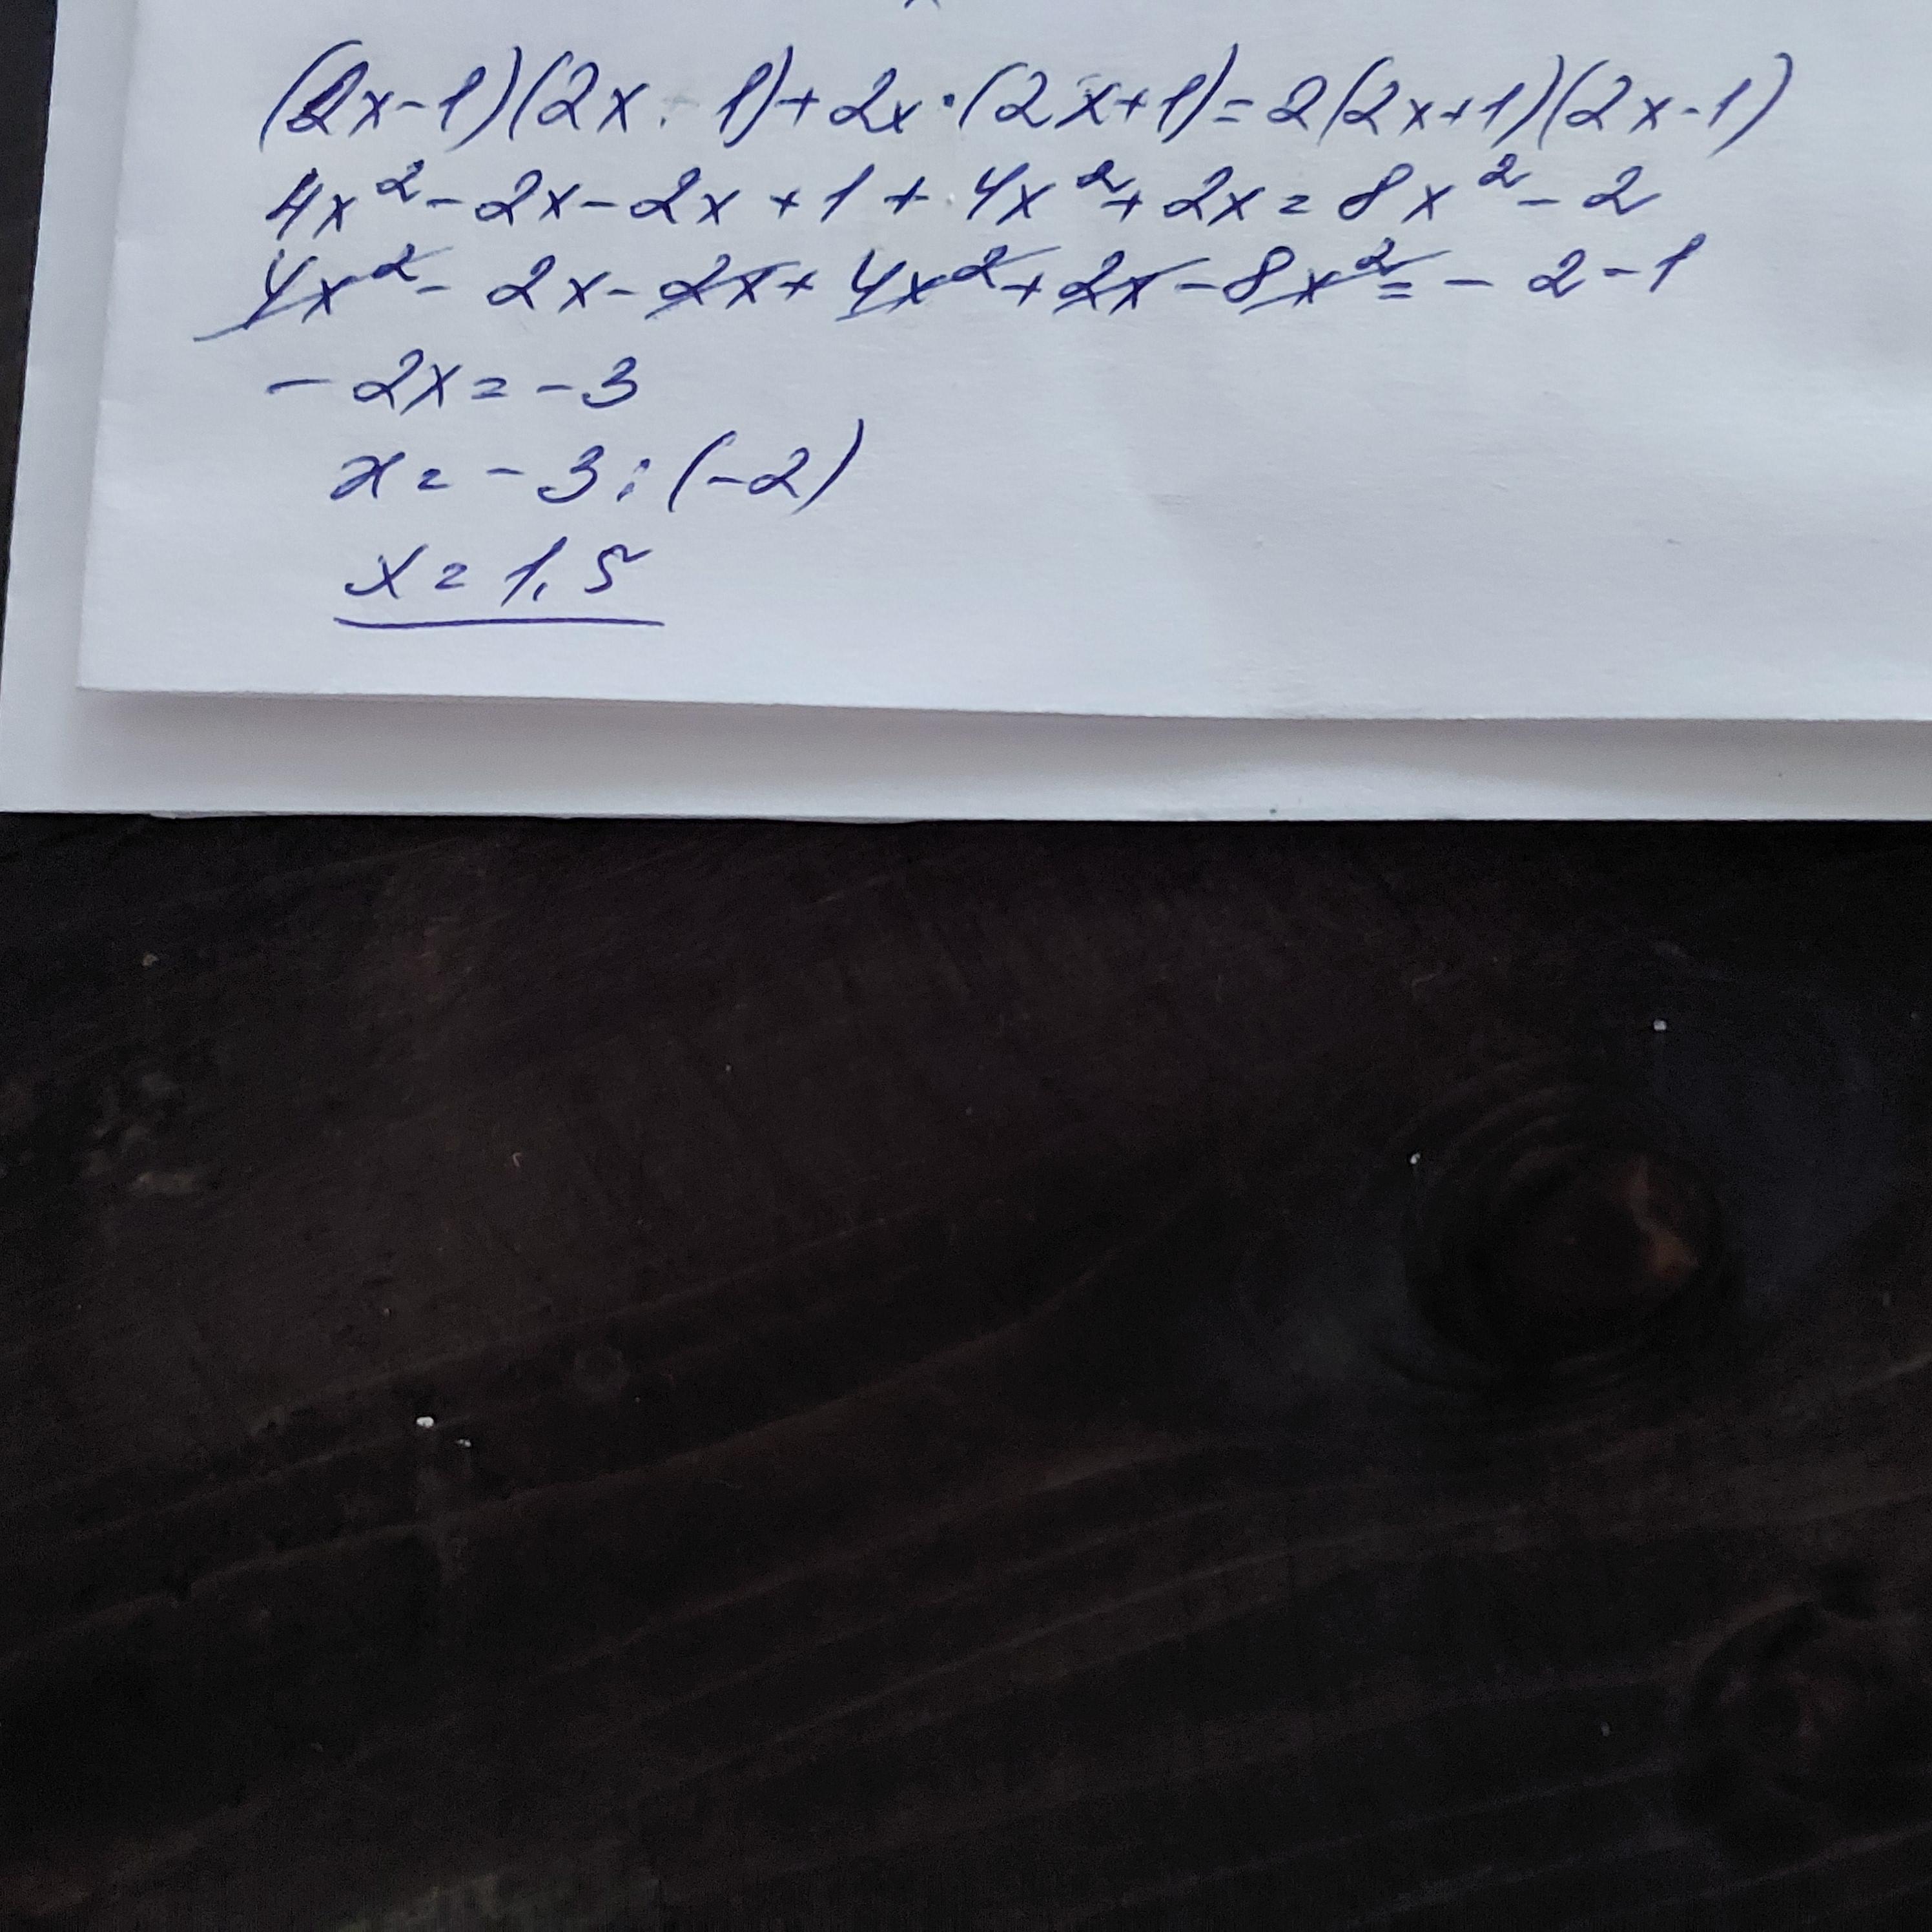 (2x-1)(2x-1)+2x·(2x+1)=2(2x+1)(2x-1)
4x²-2x-2x+1+4x²+2x=8x²-2
4x²-2x-2x+4x²+2x-8x²=-2-1
-2x=-3
x=-3:(-2)
x=1,5